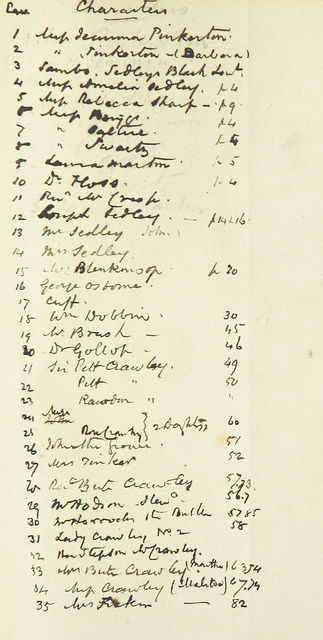 Characters
1 Miss Jemima Pinkerton.
2 " Pinkerton - (Barbara)
3 Sambo. Sedleys Black Servt.
4 Miss Amelia Sedley. p 4
5 Miss Rebecca Sharp - p 9.
6 Miss p 4
7 "
8 " Swartz p 5
9 Laura Martin p 5
10 Dr Floss. p 4
11 Revd Mr Crisp.
12 Joseph Sedley. - p 14 & 16.
13 Mr Sedley John
14 Mrs Sedley.
15 Mrs Blenkinsop. p 20
16 George Osborne.
17 Cuff.
18 Wm Dobbin. 30
19 Mr Brush - 45
20 Dr Gollop - 46
21 Sir Pitt Crawley. 49
22 Pitt " 50
23 Rawdon " "
24 Miss
25 Rose Crawley } 2 Daughters 60
26 51
27 Mrs Tinker 52
28 Revd Bute Crawley 57
29 Mr Hodson 56.7
30 Mr Horrocks the Butler 57 85
58
31 Lady Crawley No 2
32 Crawley.
33 Mrs Bute Crawley (Martha) 63.54
34 Miss Crawley (Matilda) 67.74
35 Mrs Firkin - 82